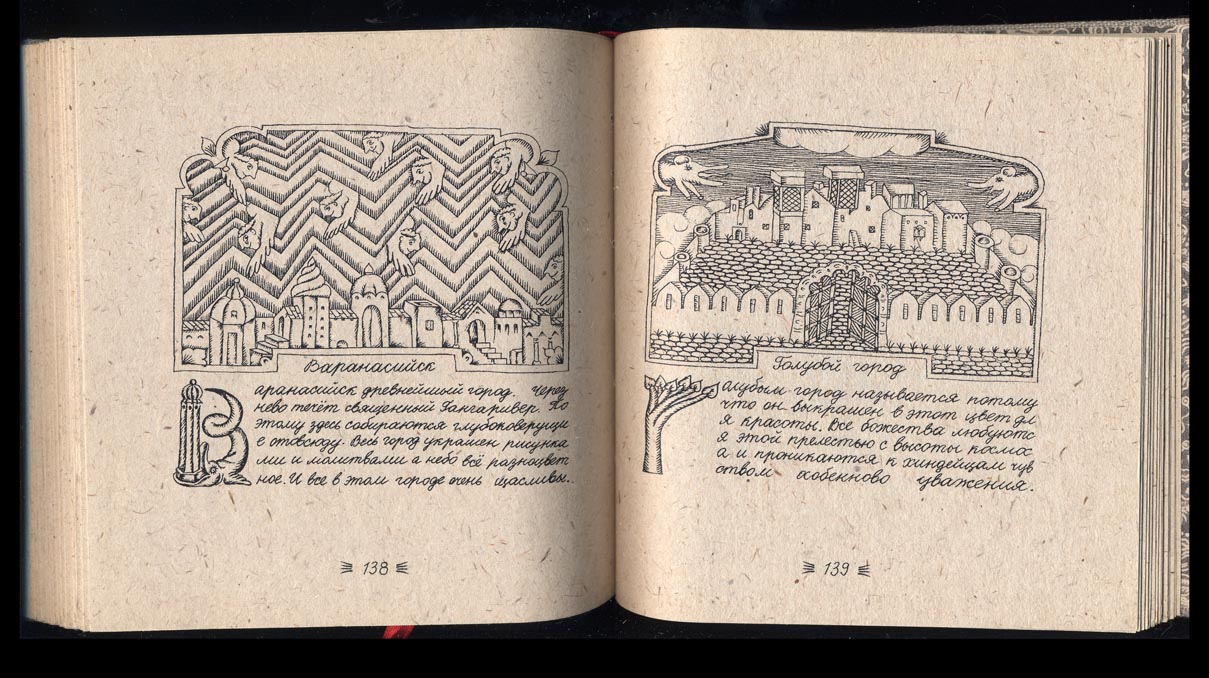 Варанасийск
Варанасийск древнейший город. Через
нево течёт священный Гангаривер. По
этому здесь собираются глубоковерущи
е отовсюду. Весь город украшен рисунка
ми и молитвами а небо всё разноцвет
ное. И все в этом городе очень щасливы.
138
Голубой город
Галубым город называется потому
что он выкрашен в этот цвет дл
я красоты. Все божества любуютс
я этой прелестью с высоты
а и проникаются к хиндейцам чув
ством уважения.
139